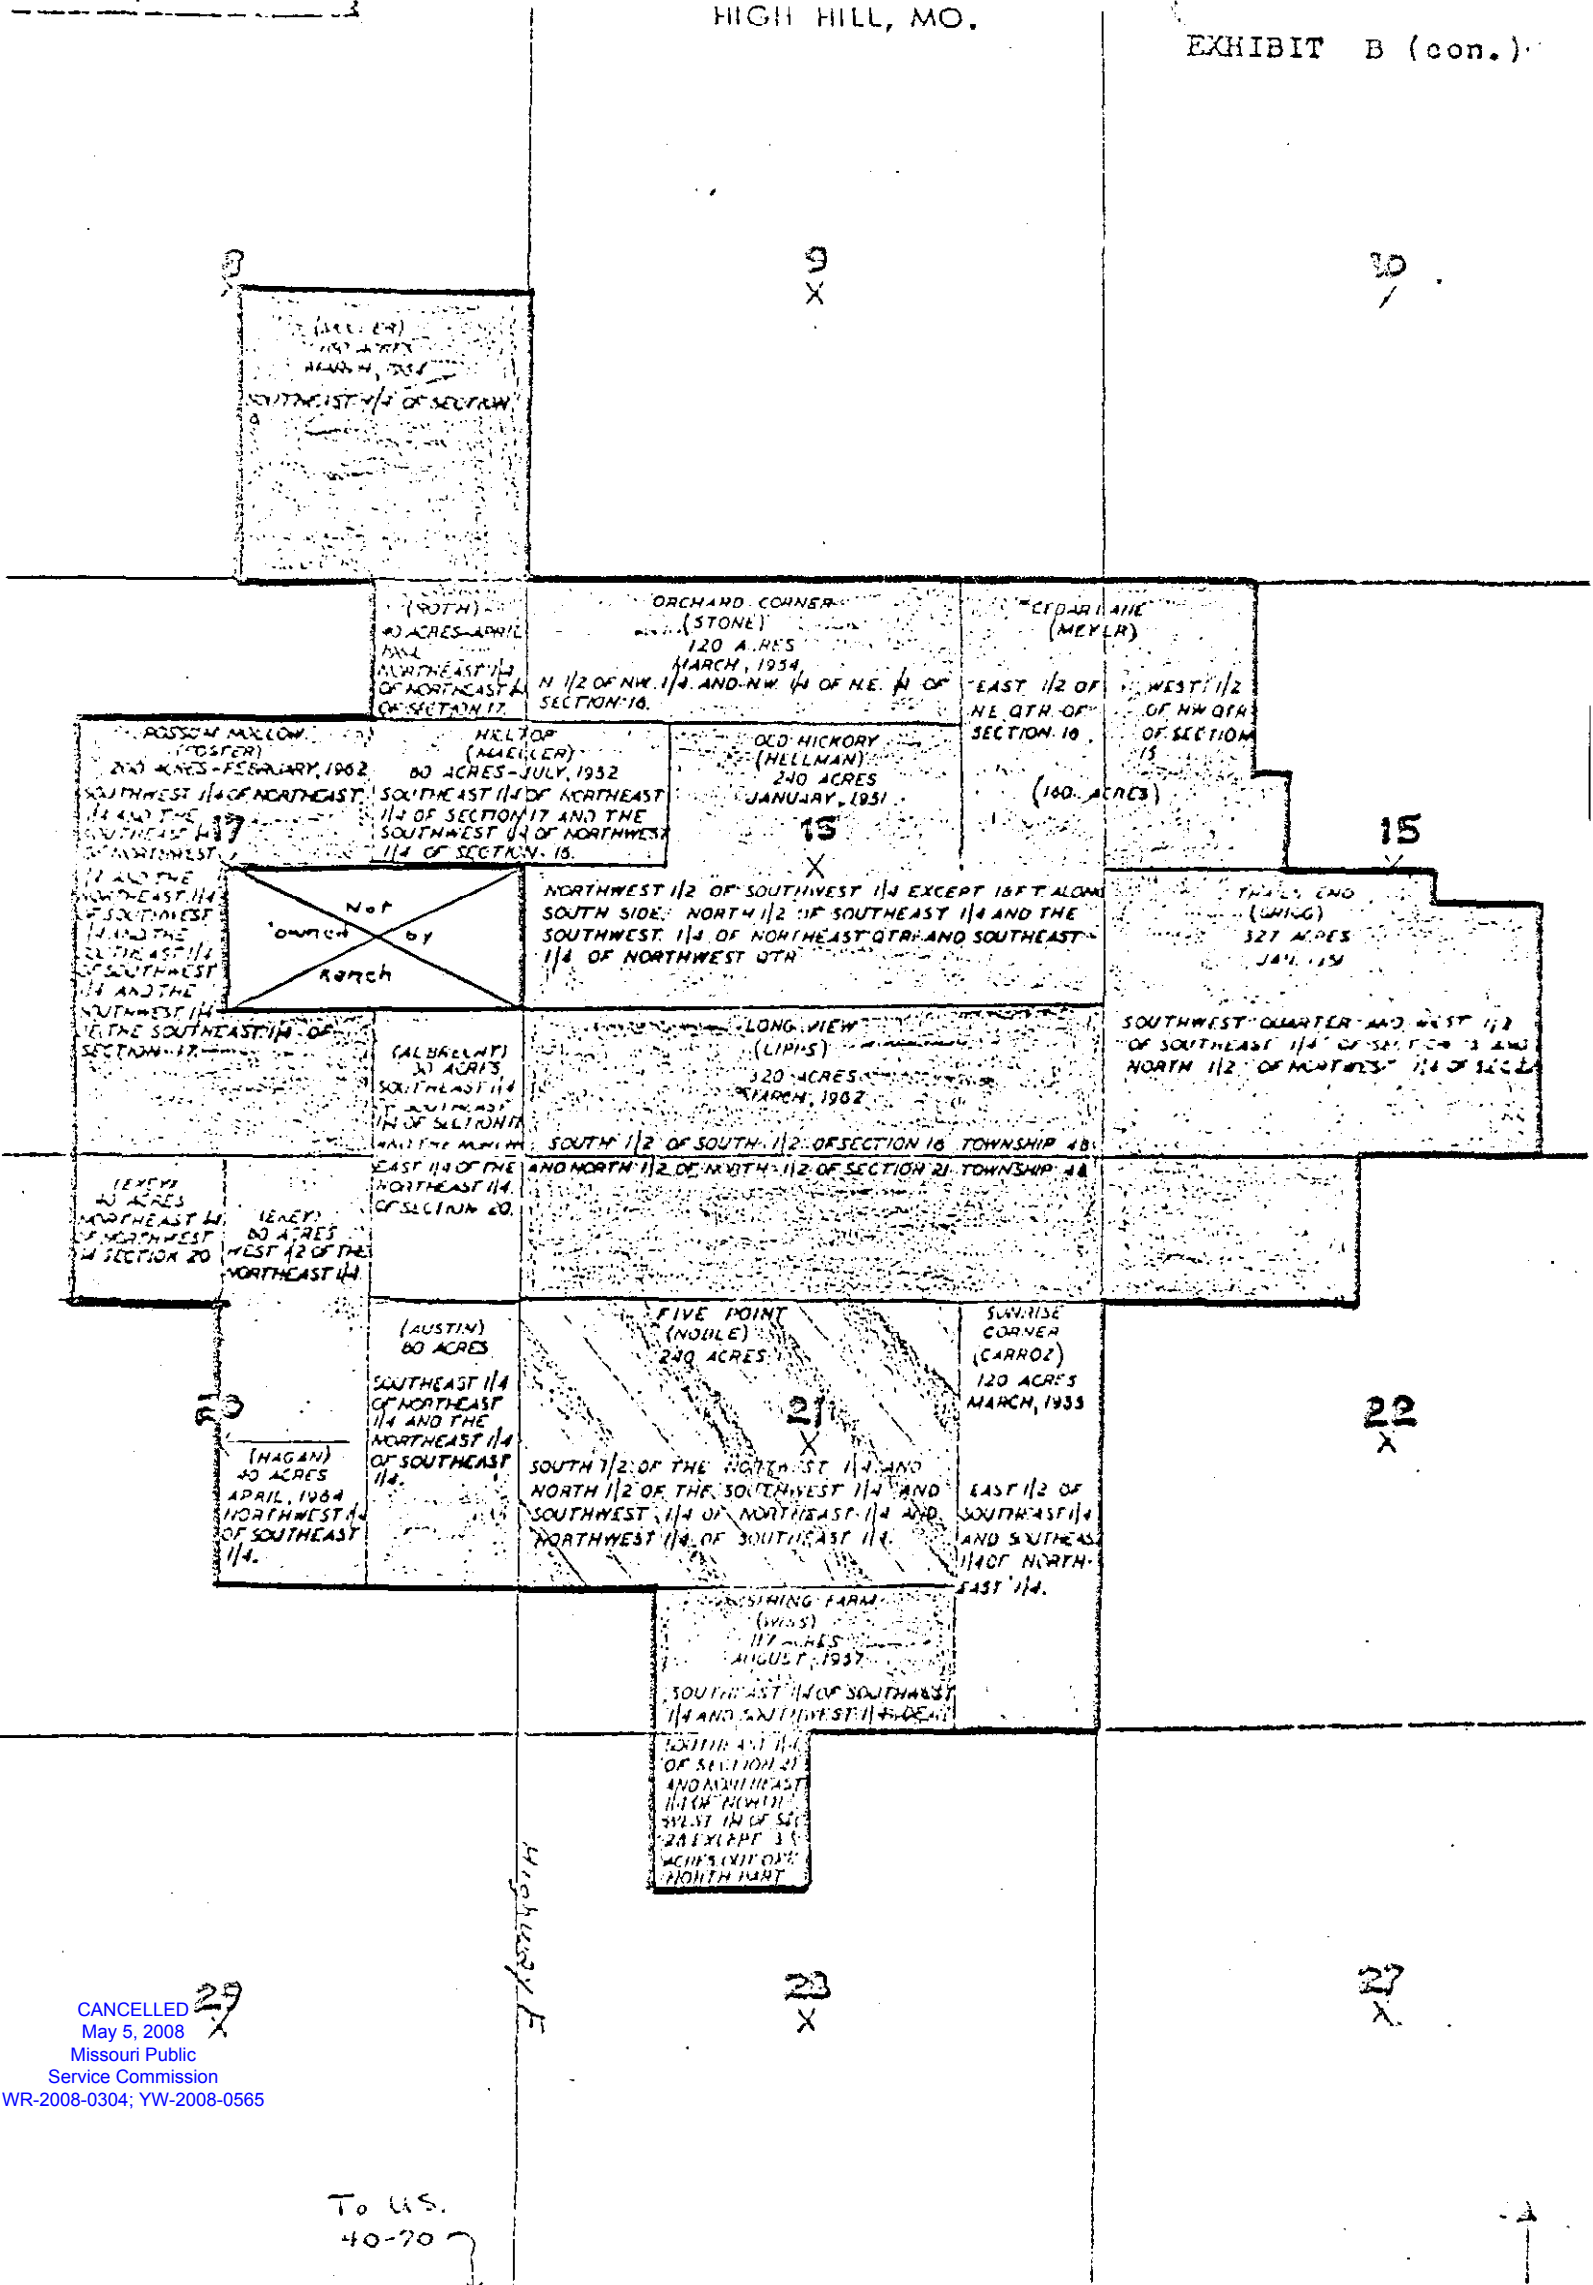 HIGH HILL, MO.
EXHIBIT B (con.)
8
9
X
10
MARCH,
SOUTHEAST 1/4 OF SECTION
(ROTH)
40 ACRES-APRIL
NORTHEAST 1/4
OF NORTHEAST 1/4
OF SECTION 17.
ORCHARD CORNER
(STONE)
120 ACRES
MARCH, 1954
N 1/2 OF NW. 1/4. AND NW. 1/4 OF N.E. 1/4 OF
SECTION 16.
CEDAR LANE
(MEYER)
EAST 1/2 OF
N.E. QTR. OF
SECTION 16
WEST 1/2
OF NW QTR
OF SECTION
15
(160 ACRES)
POSSUM HOLLOW
(FOSTER)
200 ACRES-FEBRUARY, 1962
SOUTHWEST 1/4 OF NORTHEAST
1/4 AND THE
SOUTHEAST 1/4
OF NORTHWEST
1/4 AND THE
NORTHEAST 1/4
OF SOUTHWEST
1/4 AND THE
SOUTHEAST 1/4
OF SOUTHWEST
1/4 AND THE
SOUTHWEST 1/4
OF THE SOUTHEAST 1/4 OF
SECTION 17.
17
HILLTOP
(MAELLER)
80 ACRES-JULY, 1952
SOUTHEAST 1/4 OF NORTHEAST
1/4 OF SECTION 17 AND THE
SOUTHWEST 1/4 OF NORTHWEST
1/4 OF SECTION 16.
OLD HICKORY
(HELLMAN)
240 ACRES
JANUARY, 1951
X
NORTHWEST 1/2 OF SOUTHWEST 1/4 EXCEPT 16FT ALONG
SOUTH SIDE. NORTH 1/2 OF SOUTHEAST 1/4 AND THE
SOUTHWEST 1/4 OF NORTHEAST QTR. AND SOUTHEAST
1/4 OF NORTHWEST QTR
15
X
Not
owned by
Ranch
TRAILS END
(GRIGG)
327 ACRES
SOUTHWEST QUARTER AND WEST 1/2
OF SOUTHEAST 1/4 OF SECTION 15 AND
NORTH 1/2 OF NORTHWEST 1/4 OF SEC 22
(ALBRECHT)
ACRES
SOUTHEAST 1/4
OF SOUTHEAST
1/4 OF SECTION 17
AND THE NORTH
EAST 1/4 OF THE
NORTHEAST 1/4.
OF SECTION 20.
LONG VIEW
320 ACRES
MARCH, 1962
SOUTH 1/2 OF SOUTH 1/2 OF SECTION 16 TOWNSHIP 48
AND NORTH 1/2 OF NORTH 1/2 OF SECTION 21 TOWNSHIP 48
(EXEY)
40 ACRES
NORTHEAST 1/4
OF NORTHWEST
1/4 SECTION 20
(EXEY)
80 ACRES
WEST 1/2 OF THE
NORTHEAST 1/4
(AUSTIN)
80 ACRES
SOUTHEAST 1/4
OF NORTHEAST
1/4 AND THE
NORTHEAST 1/4
OF SOUTHEAST
1/4.
FIVE POINT
(NOBLE)
240 ACRES
21
X
SOUTH 1/2 OF THE NORTHWEST 1/4 AND
NORTH 1/2 OF THE SOUTHWEST 1/4 AND
SOUTHWEST 1/4 OF NORTHEAST 1/4 AND
NORTHWEST 1/4 OF SOUTHEAST 1/4.
SUNRISE
CORNER
(CARROZ)
120 ACRES
MARCH, 1955
EAST 1/2 OF
SOUTHEAST 1/4
AND SOUTHEAST
1/4 OF NORTH-
EAST 1/4.
20
22
X
(HAGAN)
40 ACRES
APRIL, 1964
NORTHWEST 1/4
OF SOUTHEAST
1/4.
SPRING FARM
117 ACRES
AUGUST, 1957
SOUTHEAST 1/4 OF SOUTHWEST
1/4 AND SOUTHWEST 1/4 OF
SOUTHEAST 1/4
OF SECTION 21
AND NORTHEAST
1/4 OF NORTH
WEST 1/4 OF SEC
28 EXCEPT 3
ACRES OUT OF
NORTH PART
Highway F
29
X
28
X
27
X
CANCELLED
May 5, 2008
Missouri Public
Service Commission
WR-2008-0304; YW-2008-0565
To US.
40-70